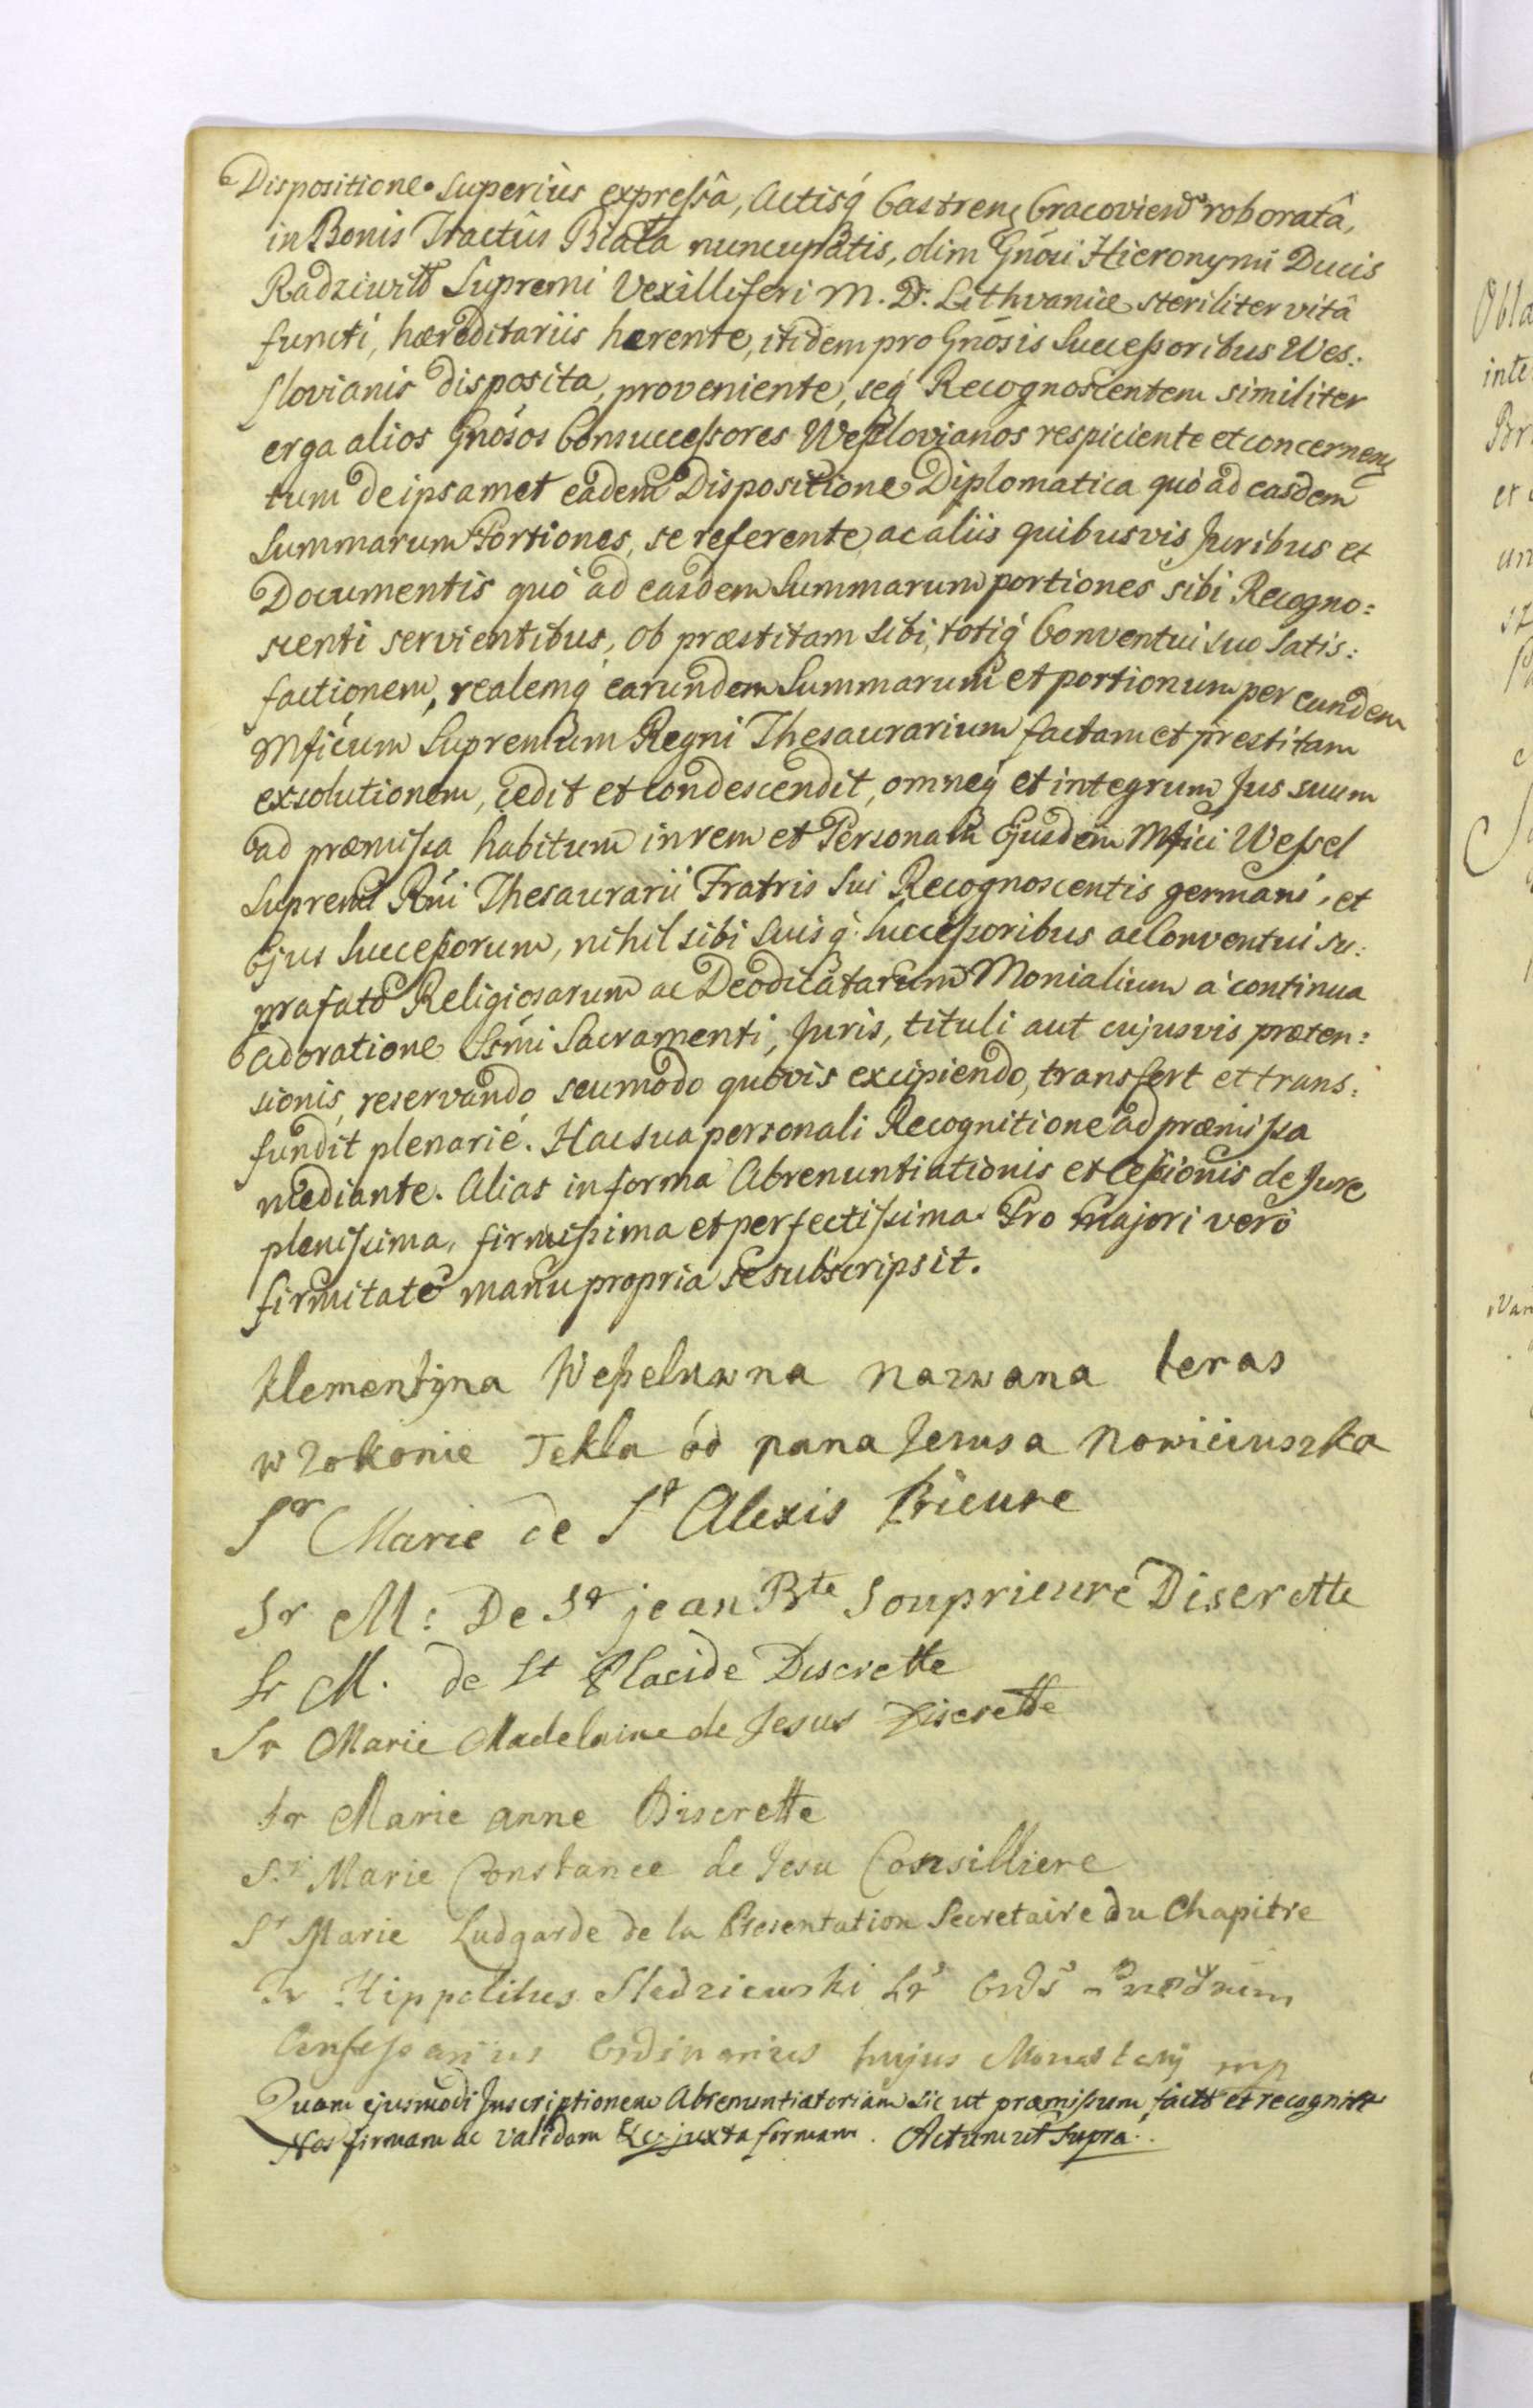 Dispositione superiùs expreſsâ, Actisq́ Castren: Cracovien: roboratâ,
in Bonis Tractûs Biała nuncupatis, olim Gnõu Hieronymi Ducis
Radziwiłł Supremi Vexilliferi M. D. Lithvaniæ steriliter vitâ
functi, hæreditariis hærente, itidem pro Gnõsis Succeſsoribus Wes:
slovianis disposita, proveniente, seq́ Recognoscentem similiter
erga alios Gnõsos Consucceſsores Weſslovianos respiciente et concernen:
tum de ipsamet eadem Dispositione Diplomatica quò ad easdem
Summarum Portiones, se referente, ac aliis quibusvis Juribus et
Documentis quò ad easdem Summarum portiones sibi Recogno:
scenti servientibus, ob præstitam sibi, totiq́ Conventui suo satis:
factionem, realemq́ earundem Summarum et portionum per eundem
Mficum Supremum Regni Thesaurarium factam et præstitam
exsolutionem, cedit et condescendit, omneq́ et integrum Jus suum
ad præmiſsa habitum in rem et Personam Ejusdem Mfici Weſsel
Supremi Rñi Thesaurarii Fratris sui Recognoscentis germani, et
Ejus Succeſsorum, nihil sibi suisq́ Succeſsoribus ac Conventui su:
præfato Religiosarum ac Deo dicatarum Monialium à continua
Adoratione Ssmi Sacramenti, Juris, tituli aut cujusvis præten:
sionis, reservando seu modo quovis excipiendo, transfert et trans:
fundit plenariè. Hac sua personali Recognitione ad præmiſsa
mediante. Alias in forma Abrenuntiationis et Ceſsionis de Jure
pleniſsima, firmiſsima et perfectiſsima. Pro majori verò
firmitate manu propria se subscripsit.
Klementyna Weſseluwna nazwana teras
w Zokonie Tekla ód pana Jezusa nowiciuszka
Sr Marie de St Alexis Prieure
Sr M: De St jean Bte Souprieure Discrette
Sr M. de St Placide Discrette
Sr Marie Madelaine de Jesus Discrette
Sr Marie anne Discrette
Sr Marie Constance de Jesu Consilliere
Sr Marie Ludgarde de la Presentation Secretaire du Chapitre
Fr Hippolitus Sledziewski Ordis Prædrum
Confeſsarius Ordinarius hujus Monasterij mp
Quam ejusmodi Inscriptionem Abrenuntiatoriam sic ut præmiſsum factã et recognitã
Nos firmam ac validam &c. juxta formam. Actum ut Supra.